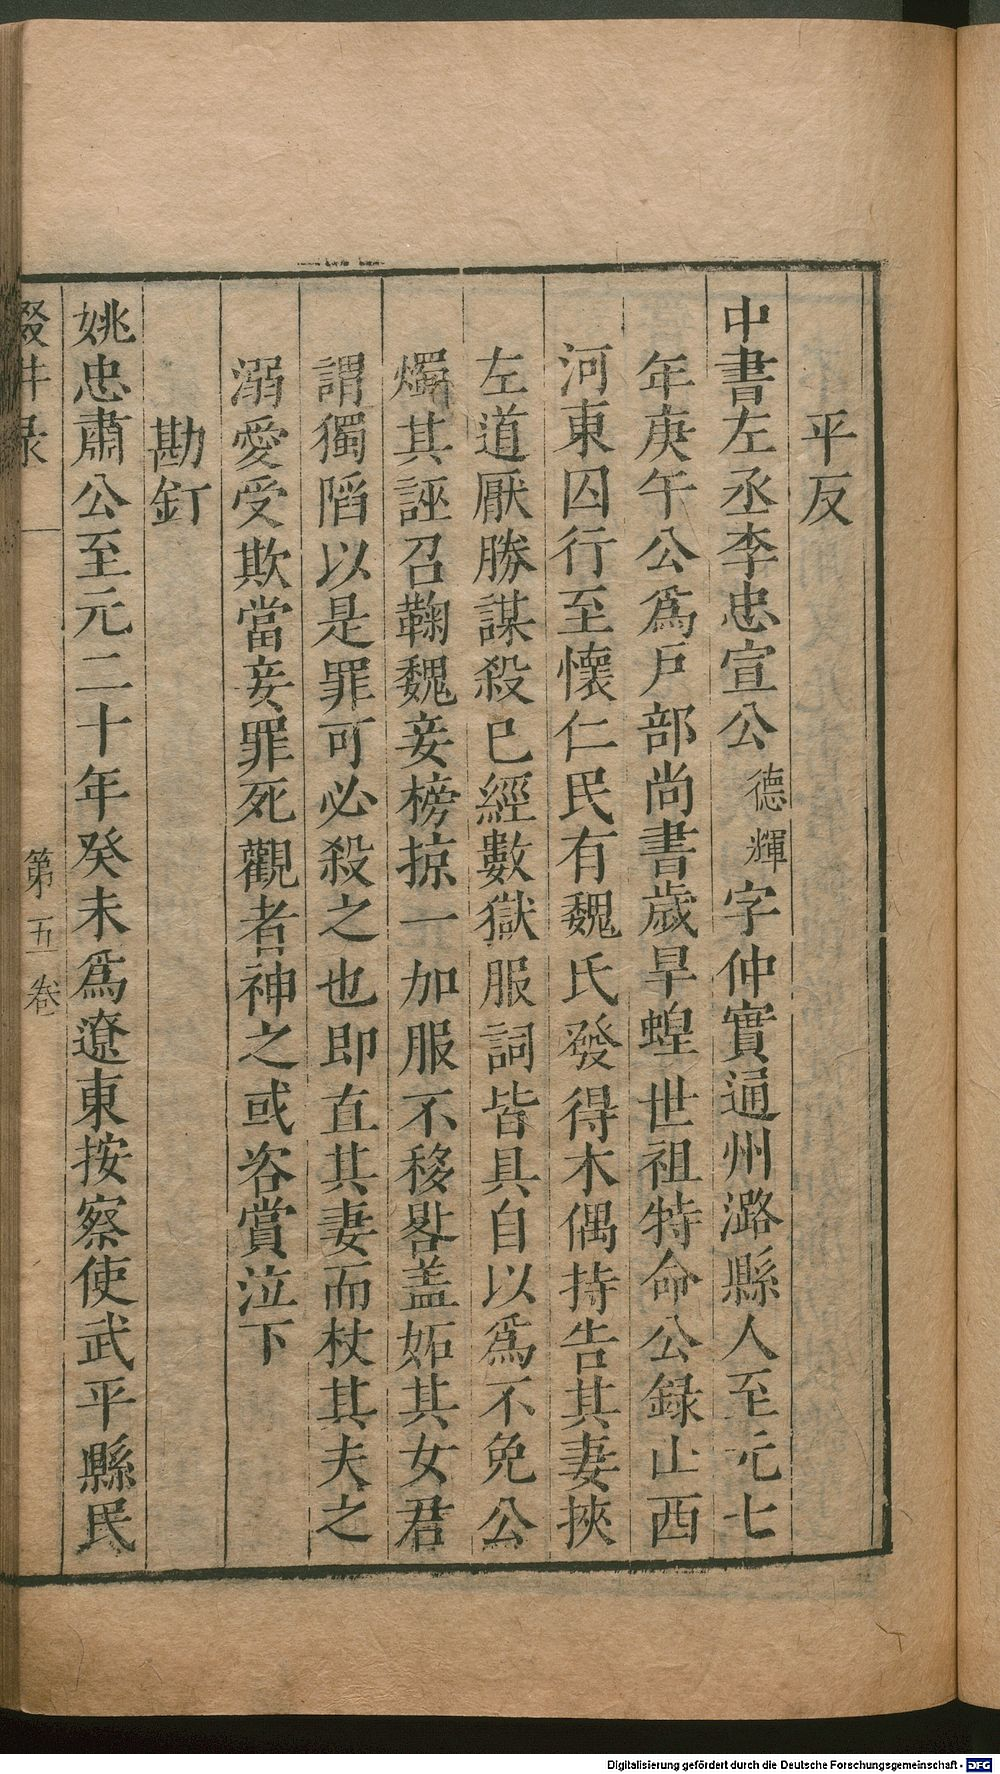 平反
中書左丞李忠宣公德輝字仲實通州潞縣人至元七
年庚午公爲戶部尚書歲旱蝗世祖特命公録山西
河東囚行至懷仁民有魏氏發得木偶持告其妻挾
左道厭勝謀殺已經數獄服詞皆具自以爲不免公
燭其誣召鞠魏妾榜掠一加服不移晷盖妬其女君
謂獨陷以是罪可必殺之也即直其妻而杖其夫之
溺愛受欺當妾罪死觀者神之或咨賞泣下
勘釘
姚忠肅公至元二十年癸未爲遼東按察使武平縣民
輟耕录 第五卷
Digitalisierung gefördert durch die Deutsche Forschungsgemeinschaft - DFG